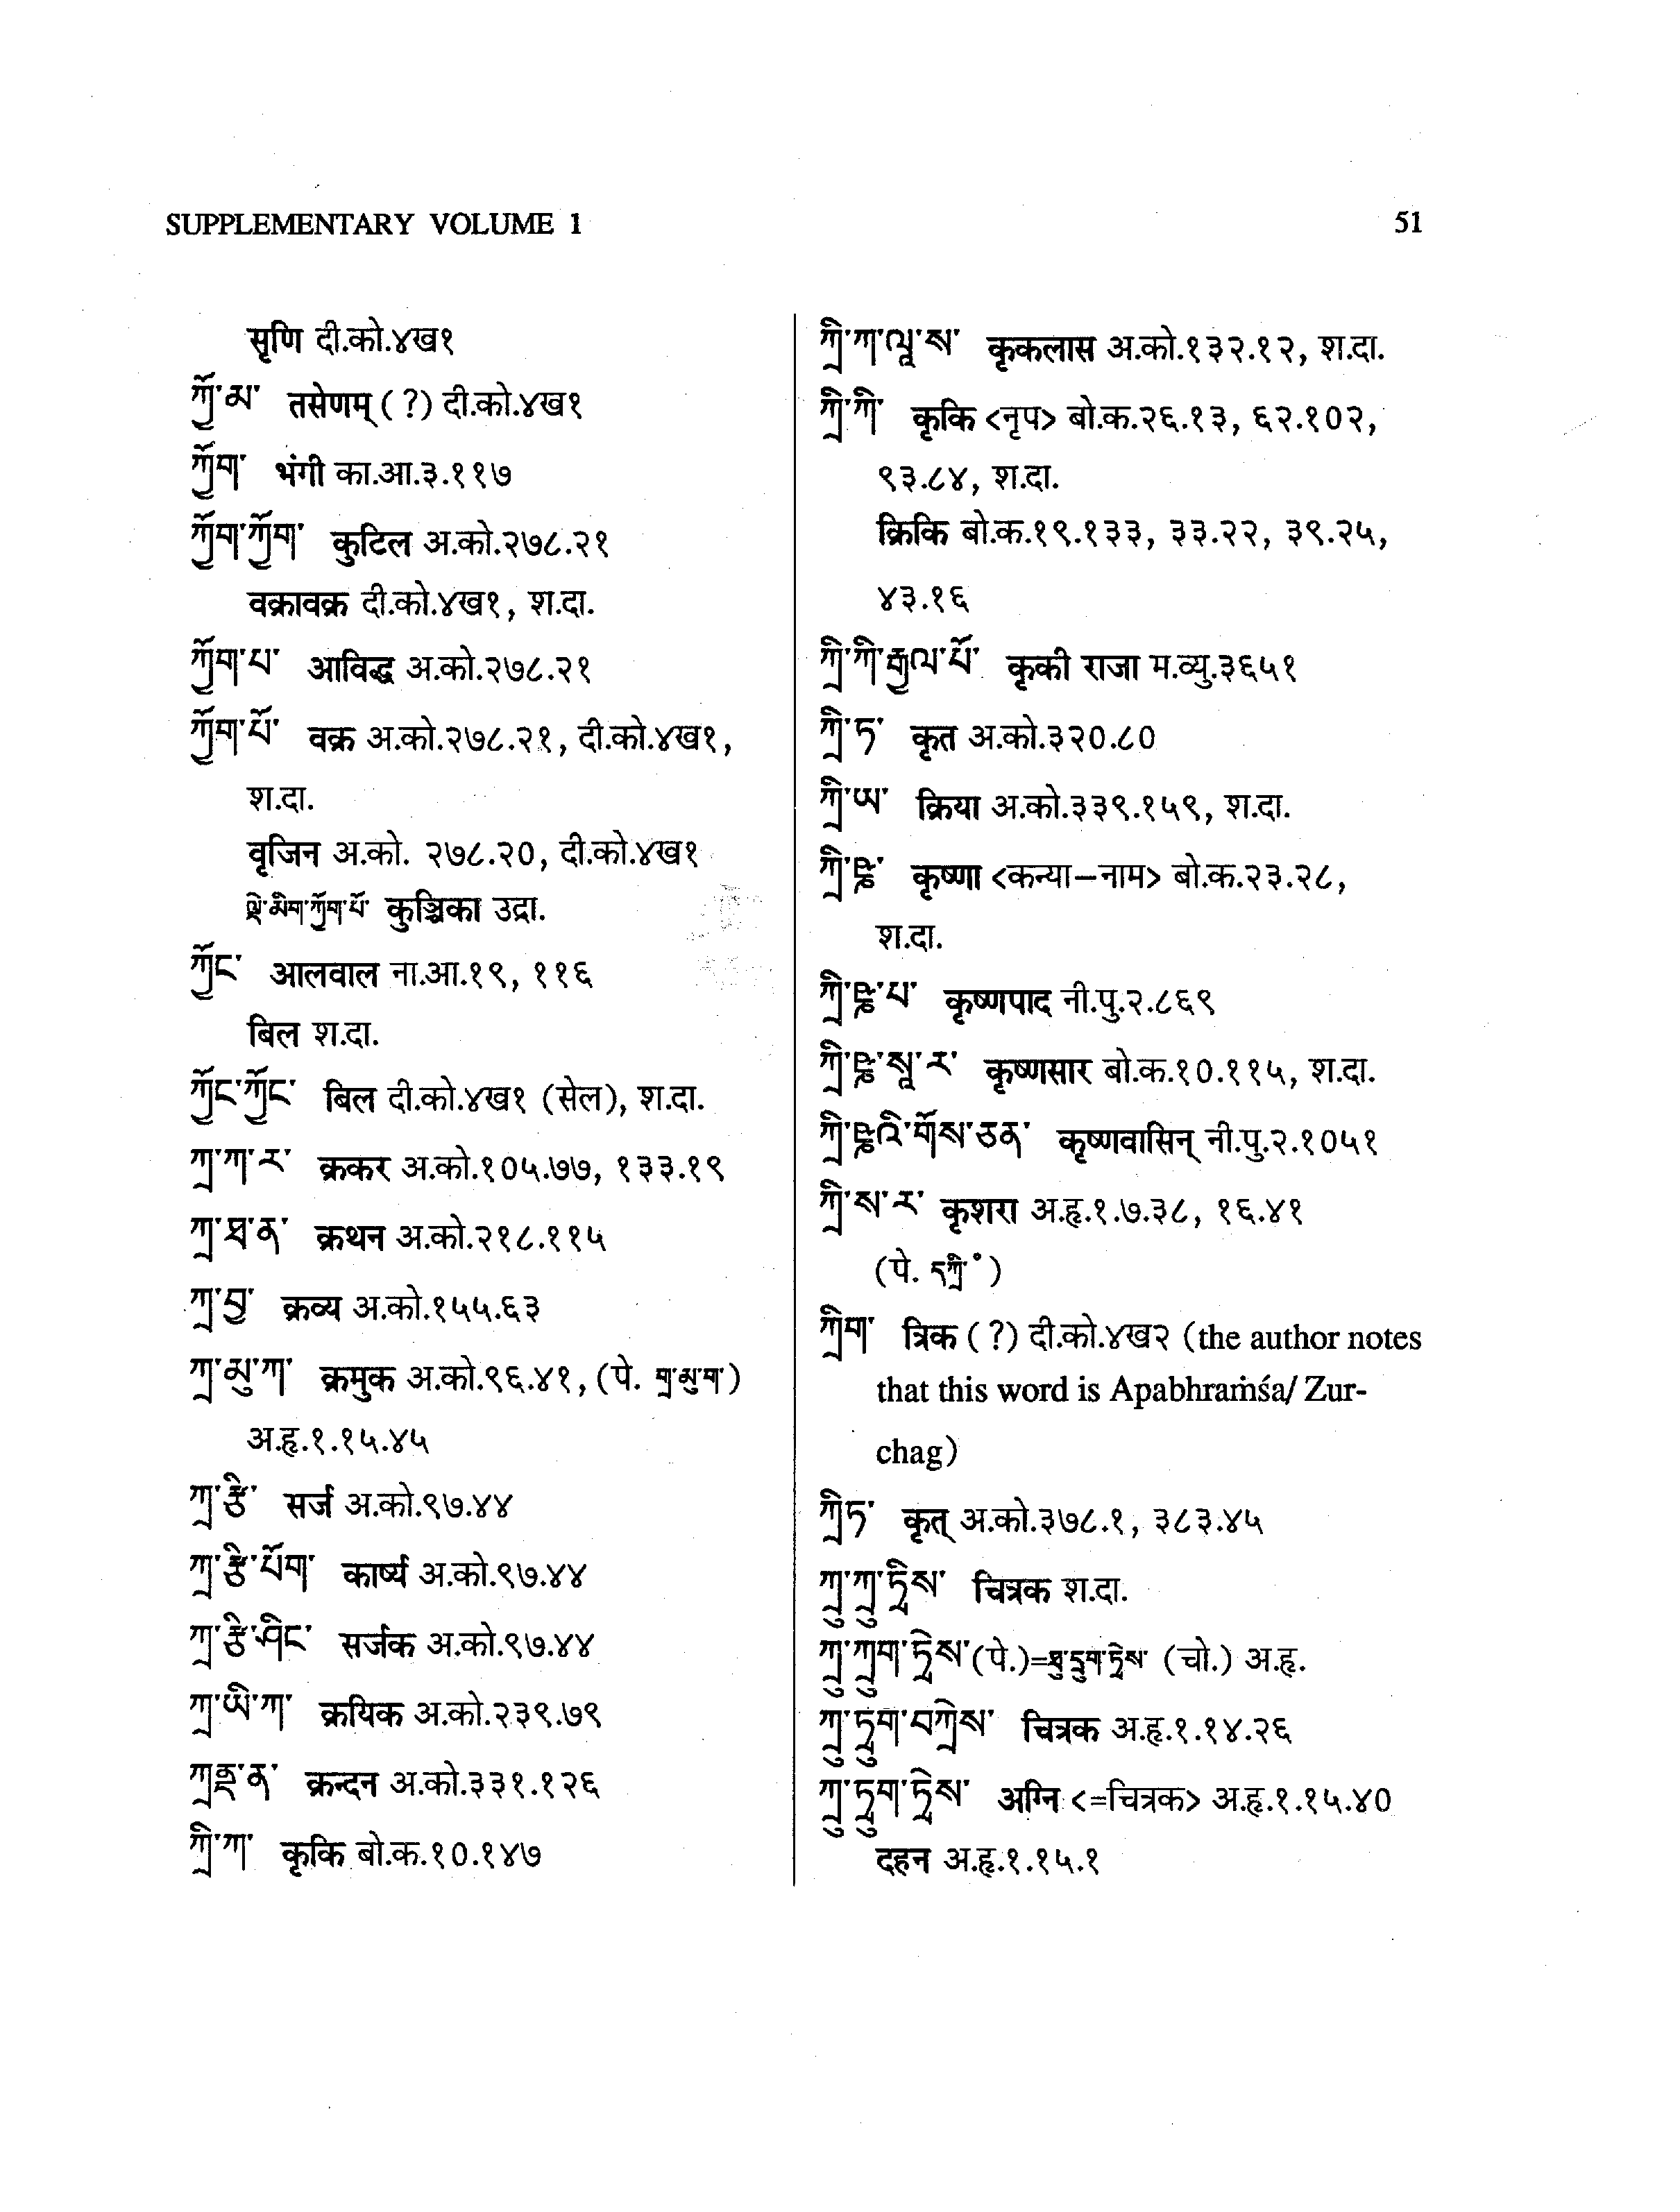 SUPPLEMENTARY VOLUME 1 51
सृणि दी.को.४ख१
ཀྱོ་མ་ तसेणम् (?) दी.को.४ख१
ཀྱོག་ भंगी का.आ.३.११७
ཀྱོག་ཀྱོག་ कुटिल अ.को.२७८.२१
वक्रावक्र दी.को.४ख१, श.दा.
ཀྱོག་པ་ आविद्ध अ.को.२७८.२१
ཀྱོག་པོ་ वक्र अ.को.२७८.२१, दी.को.४ख१,
श.दा.
वृजिन अ.को. २७८.२०, दी.को.४ख१
ལྡེ་མིག་ཀྱོག་པོ་ कुञ्चिका उद्रा.
ཀྱོང་ आलवाल ना.आ.१९, ११६
बिल श.दा.
ཀྱོང་ཀྱོང་ बिल दी.को.४ख१ (सेल), श.दा.
ཀྲ་ཀ་ར་ क्रकर अ.को.१०५.७७, १३३.१९
ཀྲ་ཐ་ན་ क्रथन अ.को.२१८.११५
ཀྲ་བྱ་ क्रव्य अ.को.१५५.६३
ཀྲ་མུ་ཀ་ क्रमुक अ.को.९६.४१, (पे. གྲ་མུ་ག་)
अ.हृ.१.१५.४५
ཀྲ་རྩི་ सर्ज अ.को.९७.४४
ཀྲ་རྩི་པོག་ कार्ष्य अ.को.९७.४४
ཀྲ་རྩི་ཤིང་ सर्जक अ.को.९७.४४
ཀྲ་ཡི་ཀ་ क्रयिक अ.को.२३९.७९
ཀྲནྡ་ན་ क्रन्दन अ.को.३३१.१२६
ཀྲྀ་ཀ་ कृकि बो.क.१०.१४७
ཀྲི་ཀ་ལཱ་ས་ कृकलास अ.को.१३२.१२, श.दा.
ཀྲི་ཀི་ कृकि <नृप> बो.क.२६.१३, ६२.१०२,
९३.८४, श.दा.
क्रिकि बो.क.१९.१३३, ३३.२२, ३९.२५,
४३.१६
ཀྲི་ཀི་རྒྱལ་པོ་ कृकी राजा म.व्यु.३६५१
ཀྲི་ཏ་ कृत अ.को.३२०.८०
ཀྲི་ཡ་ क्रिया अ.को.३३९.१५९, श.दा.
ཀྲི་ཥྞ་ कृष्णा <कन्या–नाम> बो.क.२३.२८,
श.दा.
ཀྲི་ཥྞ་པ་ कृष्णपाद नी.पु.२.८६९
ཀྲི་ཥྞ་སཱ་ར་ कृष्णसार बो.क.१०.११५, श.दा.
ཀྲི་ཥྞའི་གོས་ཅན་ कृष्णवासिन् नी.पु.२.१०५१
ཀྲི་ས་ར་ कृशरा अ.हृ.१.७.३८, १६.४१
(पे. དཀྲི་°)
ཀྲིག་ त्रिक (?) दी.को.४ख२ (the author notes
that this word is Apabhraṁśa/ Zur-
chag)
ཀྲིཏ་ कृत् अ.को.३७८.१, ३८३.४५
ཀྲུ་ཀྲུ་ཏྲིས་ चित्रक श.दा.
ཀྲུ་ཀྲུག་ཏྲེས་(पे.)= (चो.) अ.हृ.
ཀྲུ་ཏྲུག་བཀྲེས་ चित्रक अ.हृ.१.१४.२६
ཀྲུ་ཏྲུག་ཏྲེས་ अग्नि <=चित्रक> अ.हृ.१.१५.४०
दहन अ.हृ.१.१५.१